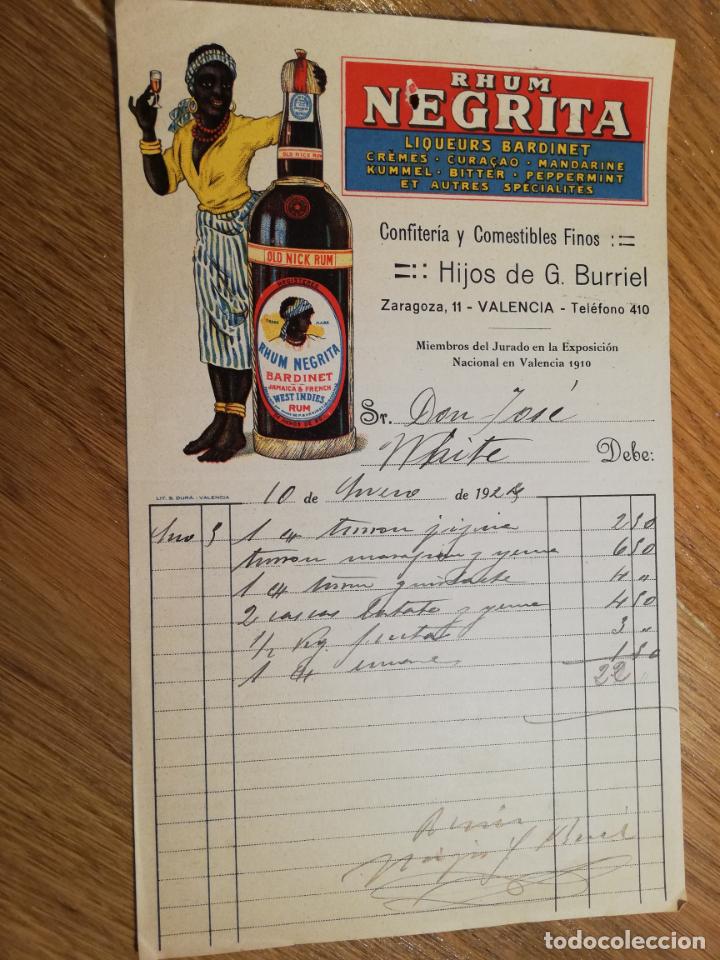 RHUM
NEGRITA
LIQUEURS BARDINET
CRÈMES · CURAÇAO · MANDARINE
KUMMEL · BITTER · PEPPERMINT
ET AUTRES SPECIALITES
OLD NICK RUM
OLD NICK RUM
REGISTERED
TRADE MARK
RHUM NEGRITA
BARDINET
JAMAICA & FRENCH
WEST INDIES
RUM
Confitería y Comestibles Finos
Hijos de G. Burriel
Zaragoza, 11 - VALENCIA - Teléfono 410
Miembros del Jurado en la Exposición
Nacional en Valencia 1910
Sr. Don José
White Debe:
LIT. S. DURÁ - VALENCIA
10 de Enero de 192
1 turron jijona 2 50
turron mazapan y yema 6 50
1 turron 4 "
2 cascas batata y yema 4 50
1/2 Kg. frutas 3 "
1 1 50
22
todocoleccion
todocoleccion.net